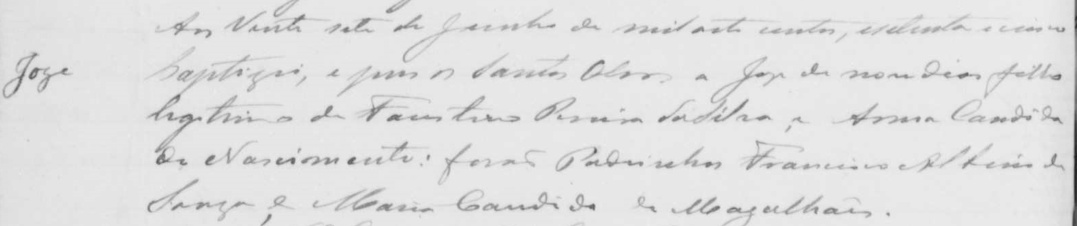 Aos Vinte sete de Junho de mil oito centos, e secenta e cinco
Joze baptizei, e pus os Santos Oleos a Joze de nove dias filho
legitimo de Faustino Pereira da Silva, e Anna Candida
do Nascimento: forão Padrinhos Francisco de
Souza, e Maria Candida de Magalhães.